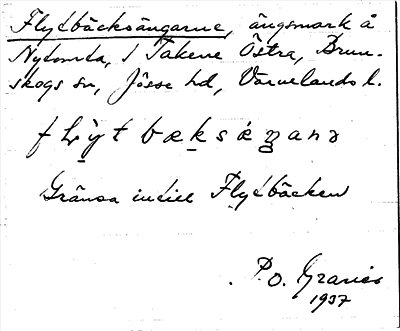 Flytbäcksängarne, ängsmark å
Nytomta, 1 Takene Östra, Brun-
skogs sn, Jösse hd, Värmlands l.
Gränsa intill Flytbäcken
P.O.
1937